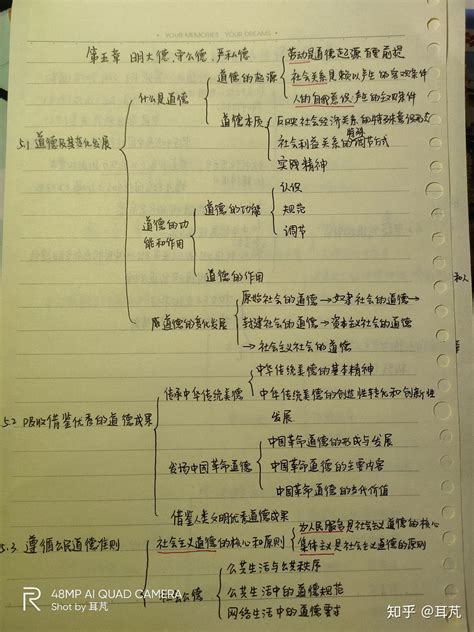 · YOUR MEMORIES YOUR DREAMS ·
第五章 明大德、守公德、严私德
劳动是道德起源首要前提
道德的起源
社会关系是赖以产生的客观条件
什么是道德
人的自我意识,产生的主观条件
道德本质
反映社会经济关系的特殊意识形态
5.1 道德及其变化发展
社会利益关系的特殊调节方式
实践精神
认识
道德的功能
规范
道德的功能和作用
调节
道德的作用
原始社会的道德→奴隶社会的道德→
道德的变化发展
封建社会的道德→资本主义社会的道德
→社会主义社会的道德
中华传统美德的基本精神
传承中华传统美德
中华传统美德的创造性转化和创新性
发展
5.2 吸收借鉴优秀的道德成果
中国革命道德的形成与发展
发扬中国革命道德
中国革命道德的主要内容
中国革命道德的当代价值
借鉴人类文明优秀道德成果
为人民服务是社会主义道德的核心
5.3 遵循公民道德准则
社会主义道德的核心和原则
集体主义是社会主义道德的原则
公共生活与公共秩序
社会公德
公共生活中的道德规范
网络生活中的道德要求
48MP AI QUAD CAMERA
Shot by 耳芃
知乎 @耳芃